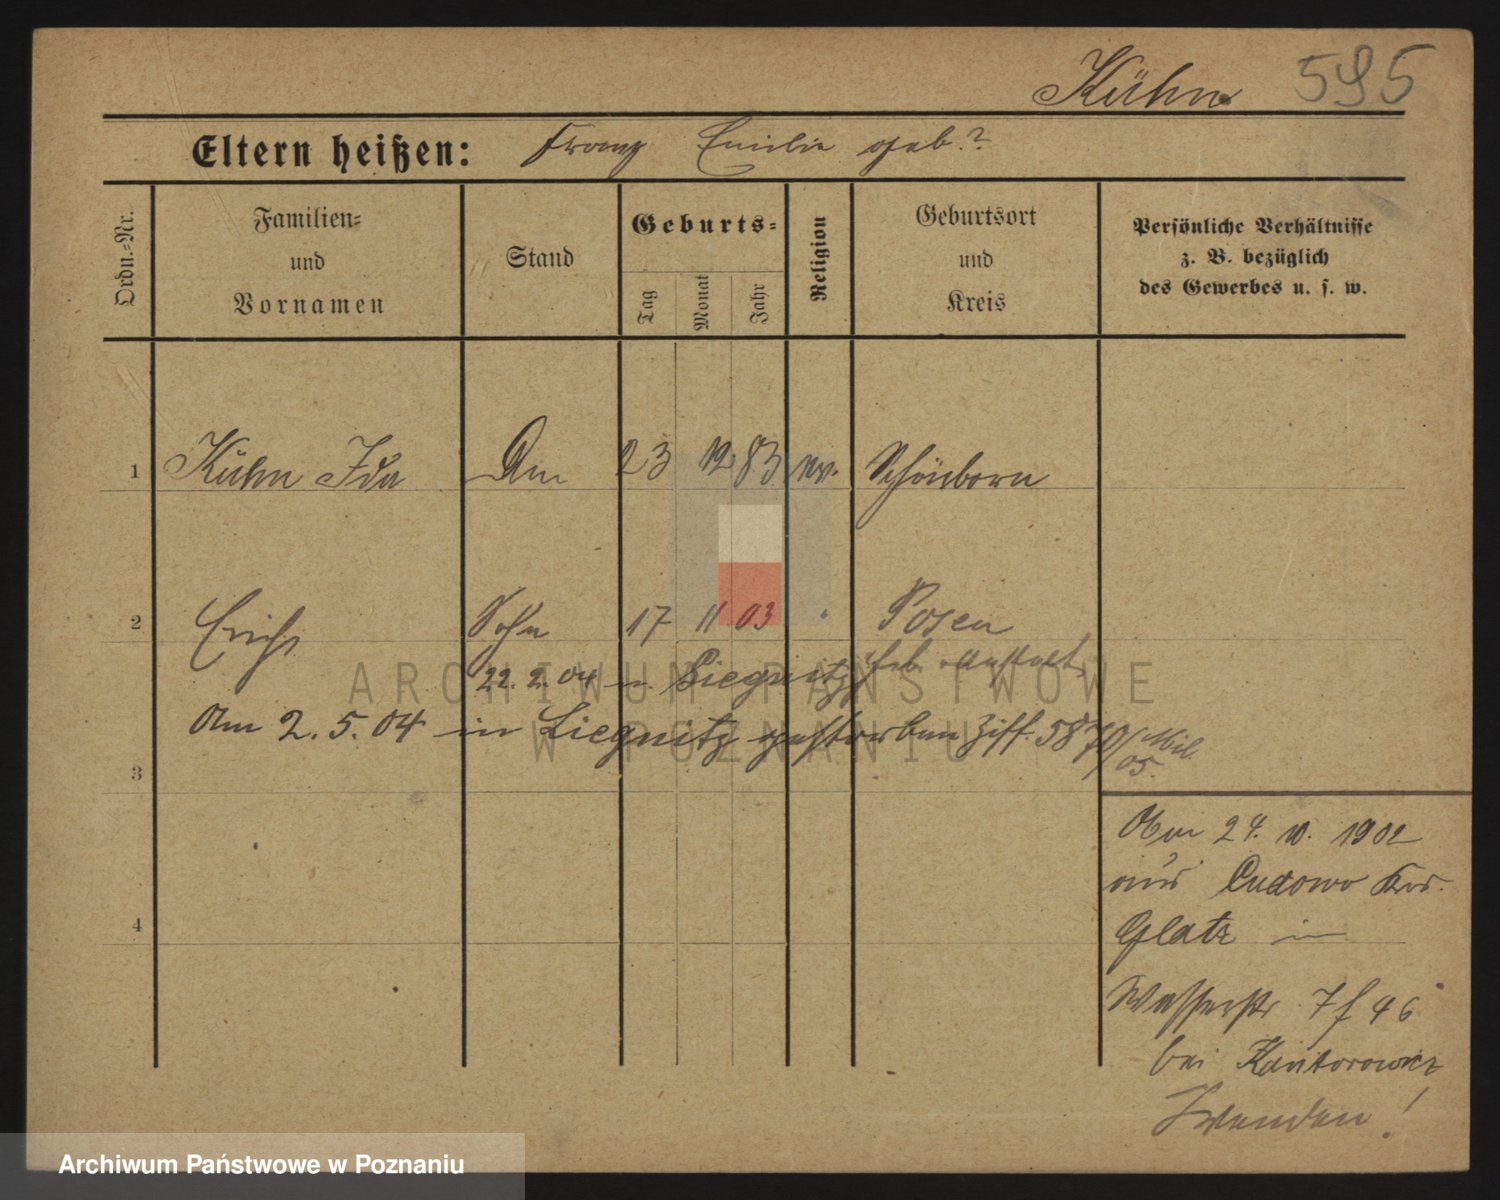 Kühn 595
Eltern heißen: Franz Emilie geb.?
Ordn.-Nr.
Familien-
und
Vornamen
Stand
Geburts-
Tag
Monat
Jahr
Religion
Geburtsort
und
Kreis
Persönliche Verhältnisse
z. B. bezüglich
des Gewerbes u. s. w.
1 Kühn Ida 23 12 83 ev. Schönborn
2 Erich Sohn 17 11 03 " Posen
22. 2. 04 in Liegnitz geb. Anstalt
Am 2. 5. 04 in Liegnitz gestorben Ziff. 5870/Mil.
05.
3
4
1902
aus Cudowo Krs.
Glatz in
Wasserstr. 7 f 46
bei Kantorowicz
Wenden!
ARCHIWUM PAŃSTWOWE
W POZNANIU
Archiwum Państwowe w Poznaniu